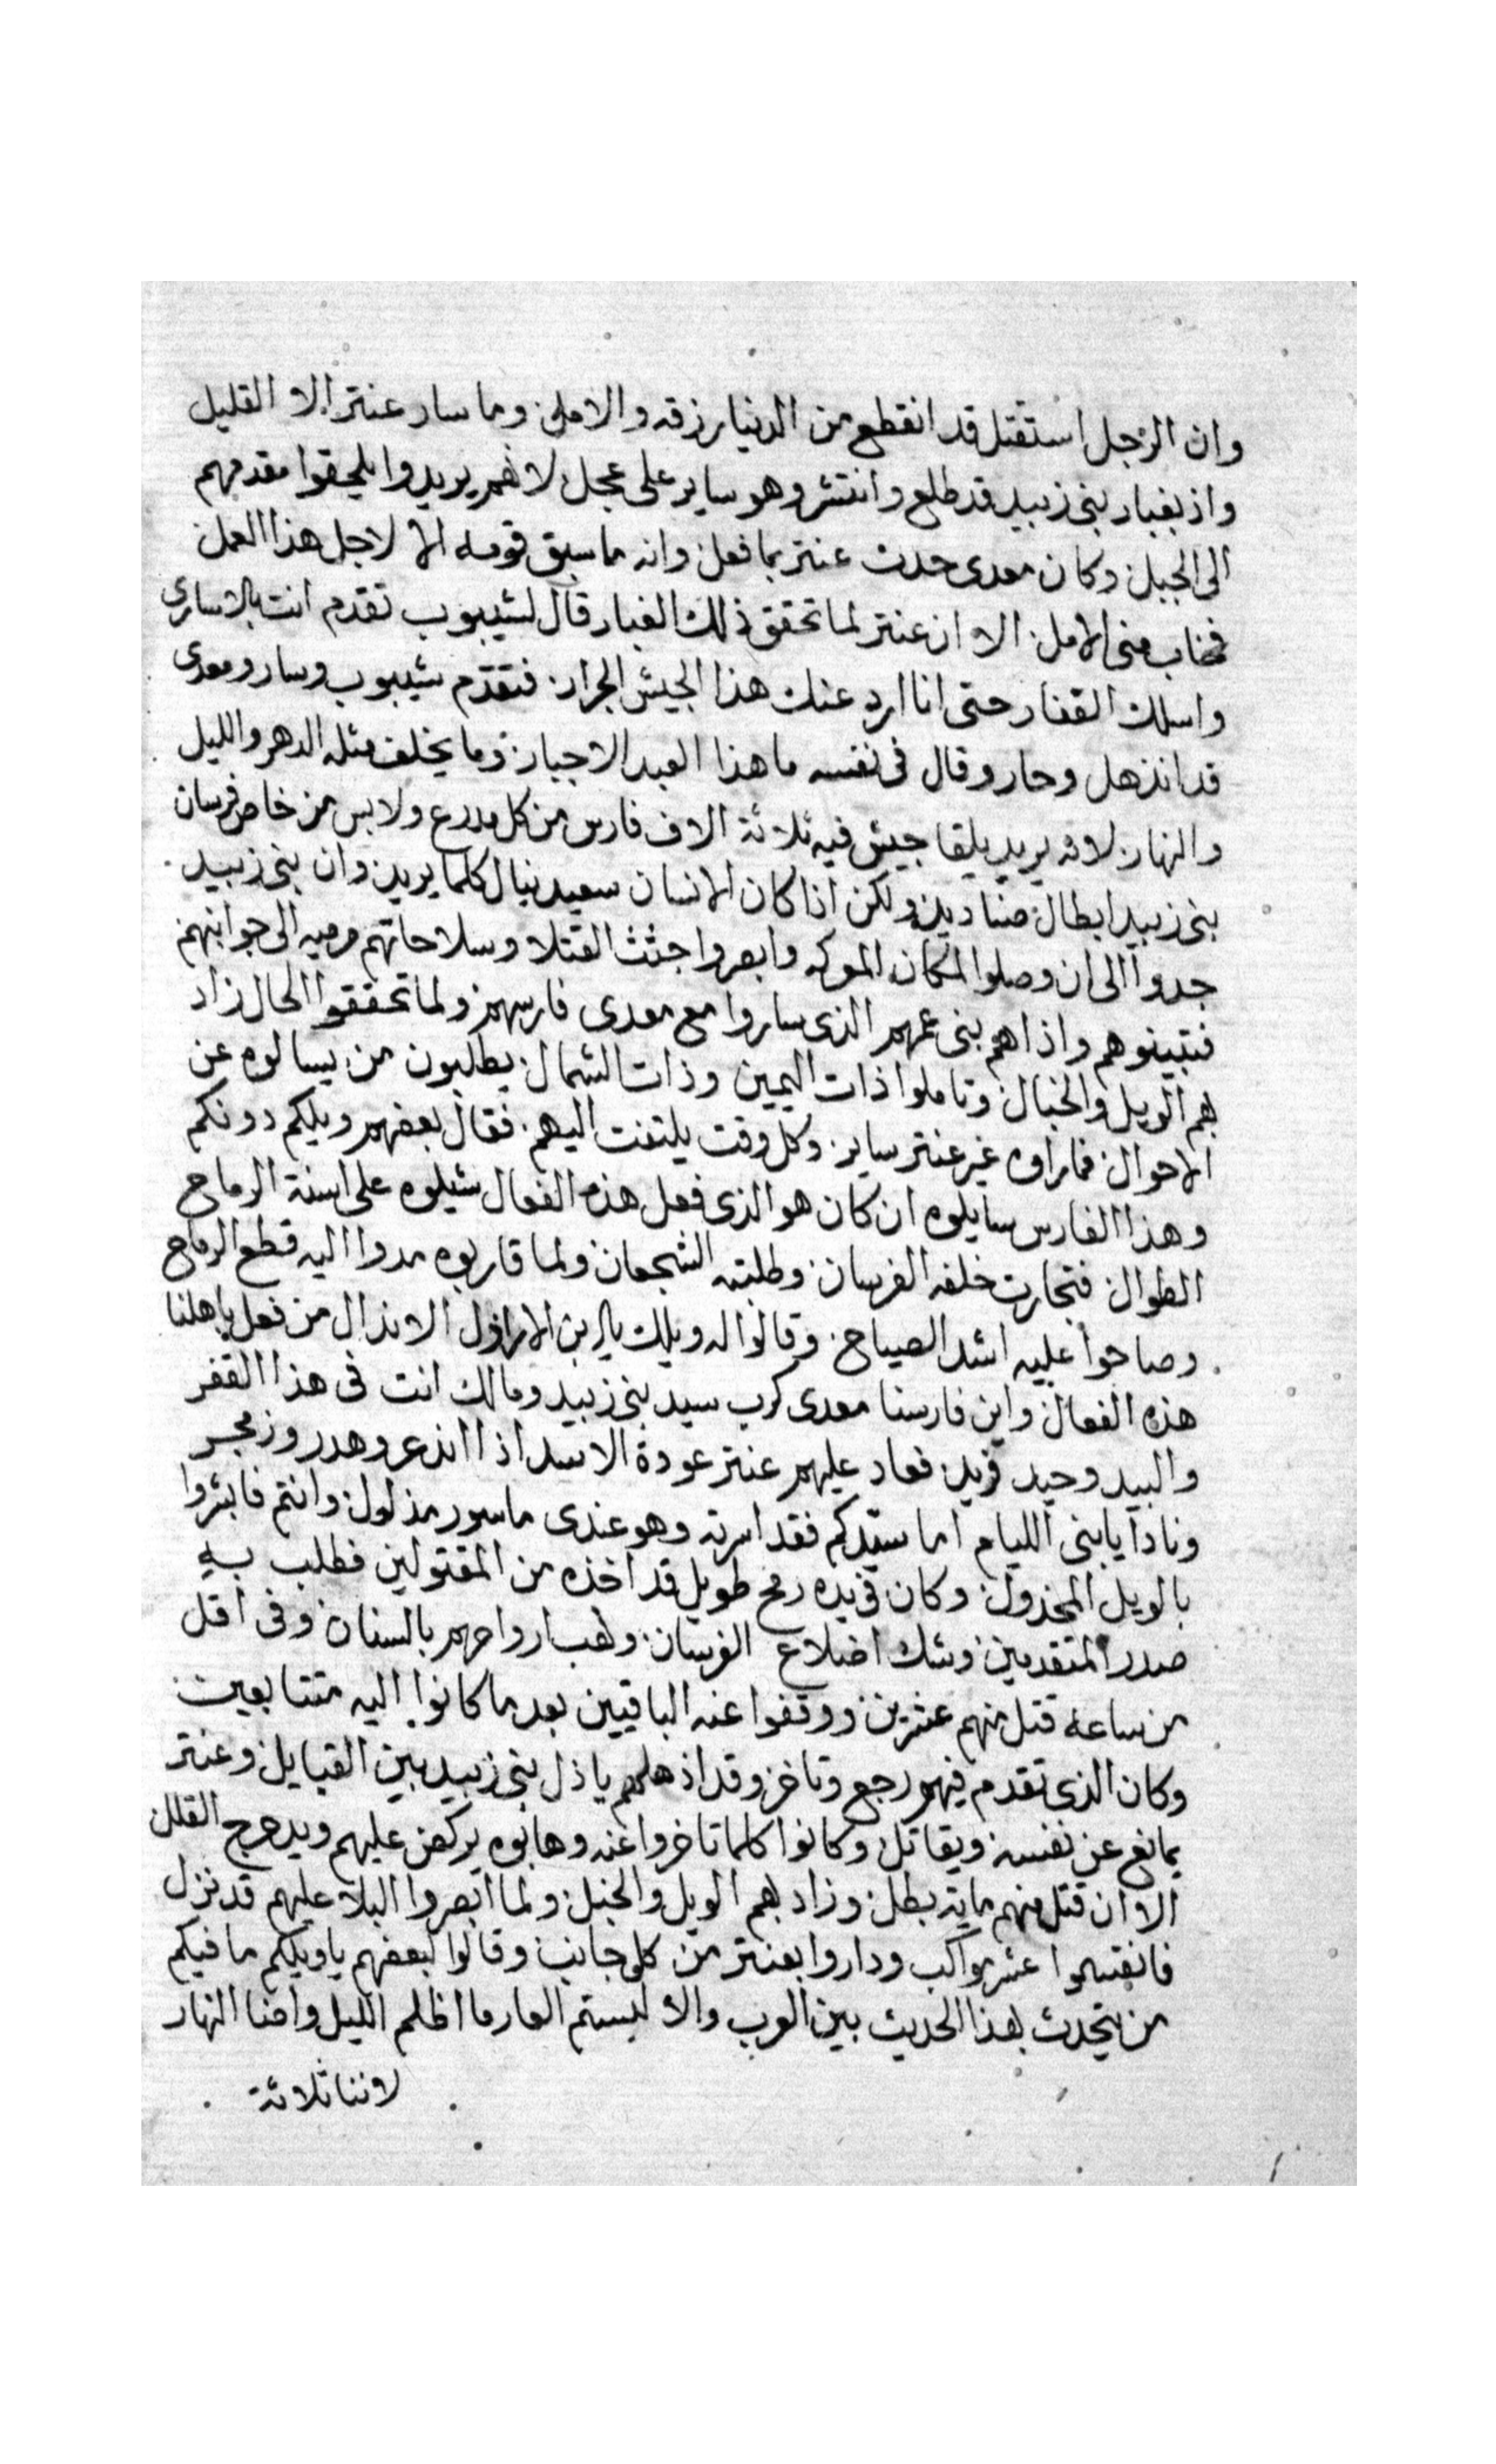 وان الرجل استقتل قد انقطع من الدنيا رزقه والامل وما سار عنتر الا القليل
واذ بغبار بنى زبيد قد طلع وانتشر وهو ساير على عجل لانهم يريدوا يلحقوا مقدمهم
الى الجبل وكان معدى حدث عنتر بما فعل وانه ما سبق قومه الا لاجل هذا العمل
فخاب منى الامل الا ان عنتر لما تحقق ذلك الغبار قال لشيبوب تقدم انت بالاسارى
واسلك القفار حتى انا ارد عنك هذا الجيش الجرار فتقدم شيبوب وسار ومعدى
قد انذهل وحار وقال فى نفسه ما هذا العبد الا جبار وما يخلف مثله الدهر والليل
والنهار لانه يريد يلقا جيش فيه ثلاثة الاف فارس من كل مدرع ولابس من خاص فرسان
بنى زبيد ابطال صناديد ولكن اذا كان الانسان سعيد ينال كلما يريد وان بنى زبيد
جدوا الى ان وصلوا لمكان المعركه وابصروا جثث القتلا وسلاحاتهم مرميه الى جوانبهم
فتبينوهم واذا هم بنى عمهم الذى ساروا مع معدى فارسهم ولما تحققوا الحال زاد
بهم الويل والخبال وتاملوا ذات اليمين وذات الشمال يطلبون من يسالوه عن
الاحوال فما راوه غير عنتر ساير وكل وقت يلتفت اليهم فقال بعضهم ويلكم دونكم
وهذا الفارس سايلوه ان كان هو الذى فعل هذه الفعال شيلوه على اسنة الرماح
الطوال فتجارت خلفه الفرسان وطلبته الشجعان ولما قاربوه مدوا اليه قطع الرماح
وصاحوا عليه اشد الصياح وقالوا له ويلك يا بن الاراذل الانذال من فعل باهلنا
هذه الفعال واين فارسنا معدى كرب سيد بنى زبيد ومالك انت فى هذا القفر
والبيد وحيد فريد فعاد عليهم عنتر عودة الاسد اذا انذعر وهدر وزمجر
ونادا يا بنى الليام اما سيدكم فقد اسرته وهو عندى ماسور مذلول وانتم فابشروا
بالويل المخذول وكان فى يده رمح طويل قد اخذه من المقتولين فطلب به
صدر المتقدمين وشك اضلاع الفرسان ونهب ارواحهم بالسنان وفى اقل
من ساعة قتل منهم عشرين ووقفوا عنه الباقيين بعد ما كانوا اليه متتابعين
وكان الذى تقدم فيهم رجع وتاخر وقد اذهلهم يا ذل بنى زبيد بين القبايل وعنتر
يمانع عن نفسه ويقاتل وكانوا كلما تاخروا عنه وهابوه يركض عليهم ويدحرج القلل
الا ان قتل منهم مايه بطل وزاد بهم الويل والخبل ولما ابصروا البلا عليهم قد نزل
فانقسموا عشر مواكب وداروا بعنتر من كل جانب وقالوا لبعضهم يا ويلكم ما فيكم
من يتحدث بهذا الحديث بين العرب والا لبستم العار ما اظلم الليل واضا النهار
لاننا ثلاثة